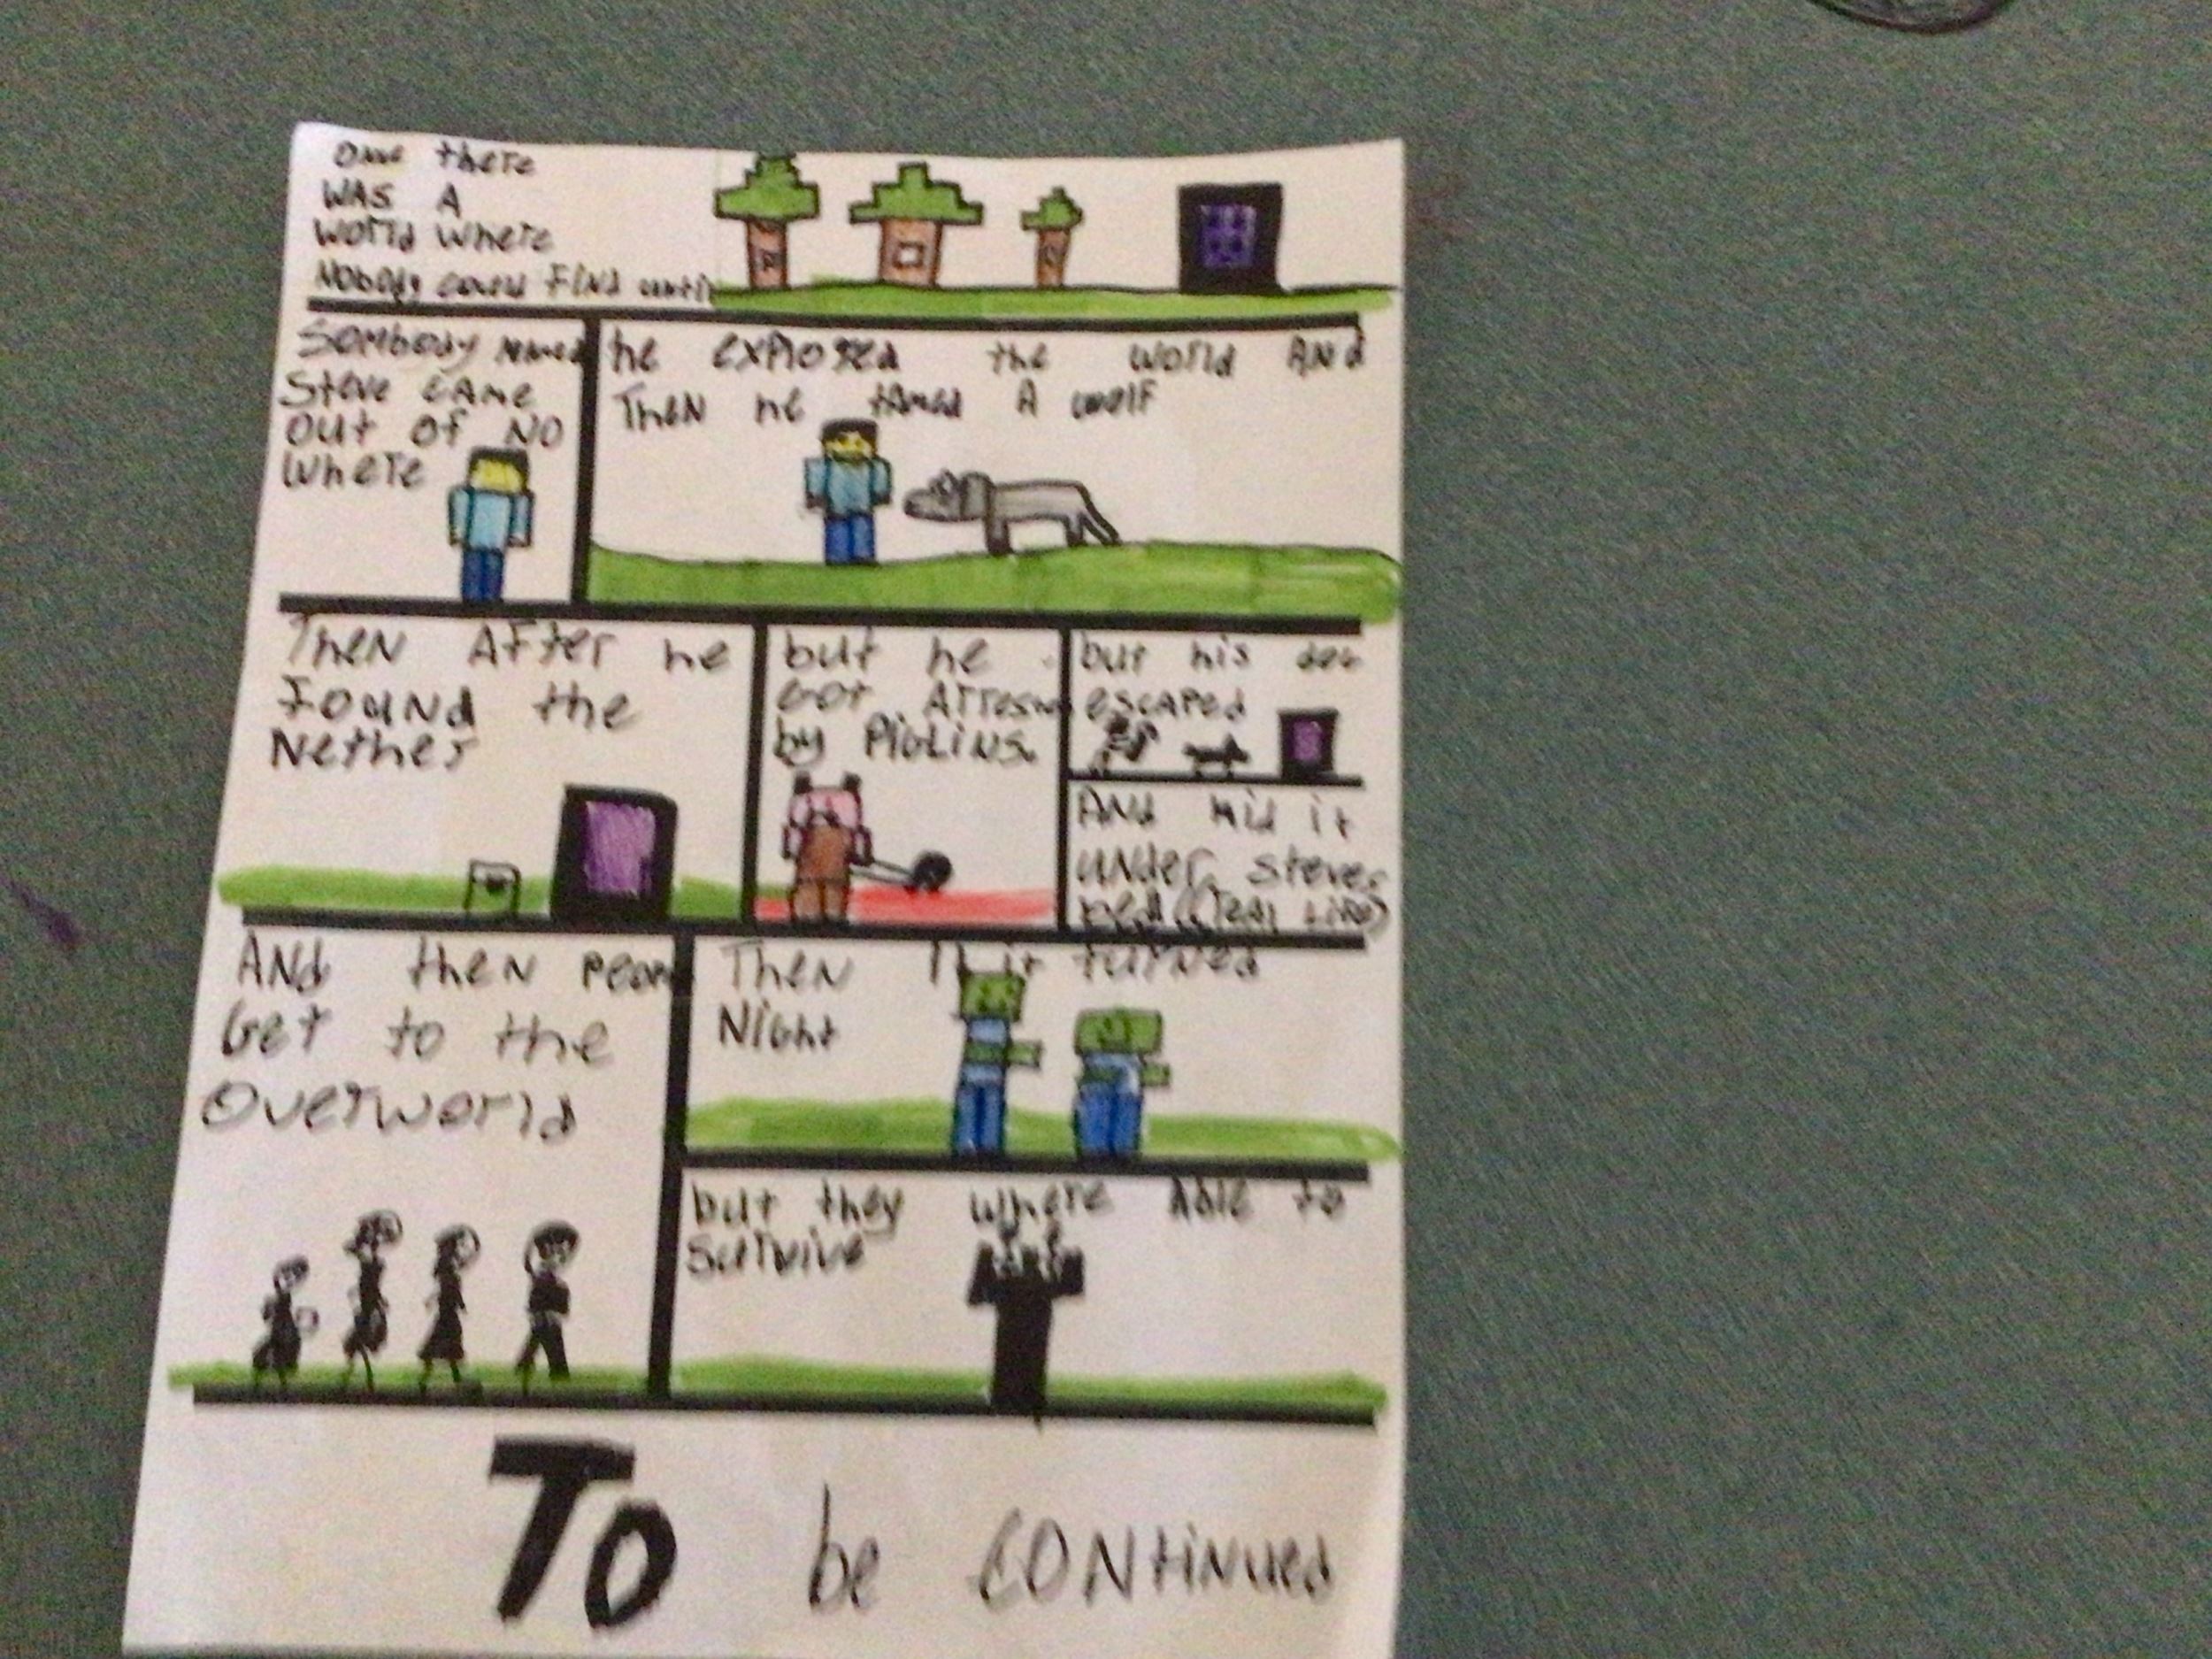 One there
was a
world where
Nobody could find until
Sombody named
Steve came
out of no
where
he explored the world And
Then he tamed A wolf
Then After he
found the
Nether
but he
got Arres
by Piglins.
but his dog
escaped
And hid it
under Steves
bed (real life)
And then peopl
get to the
Overworld
Then it turned
Night
but they where able to
survive
To be continued